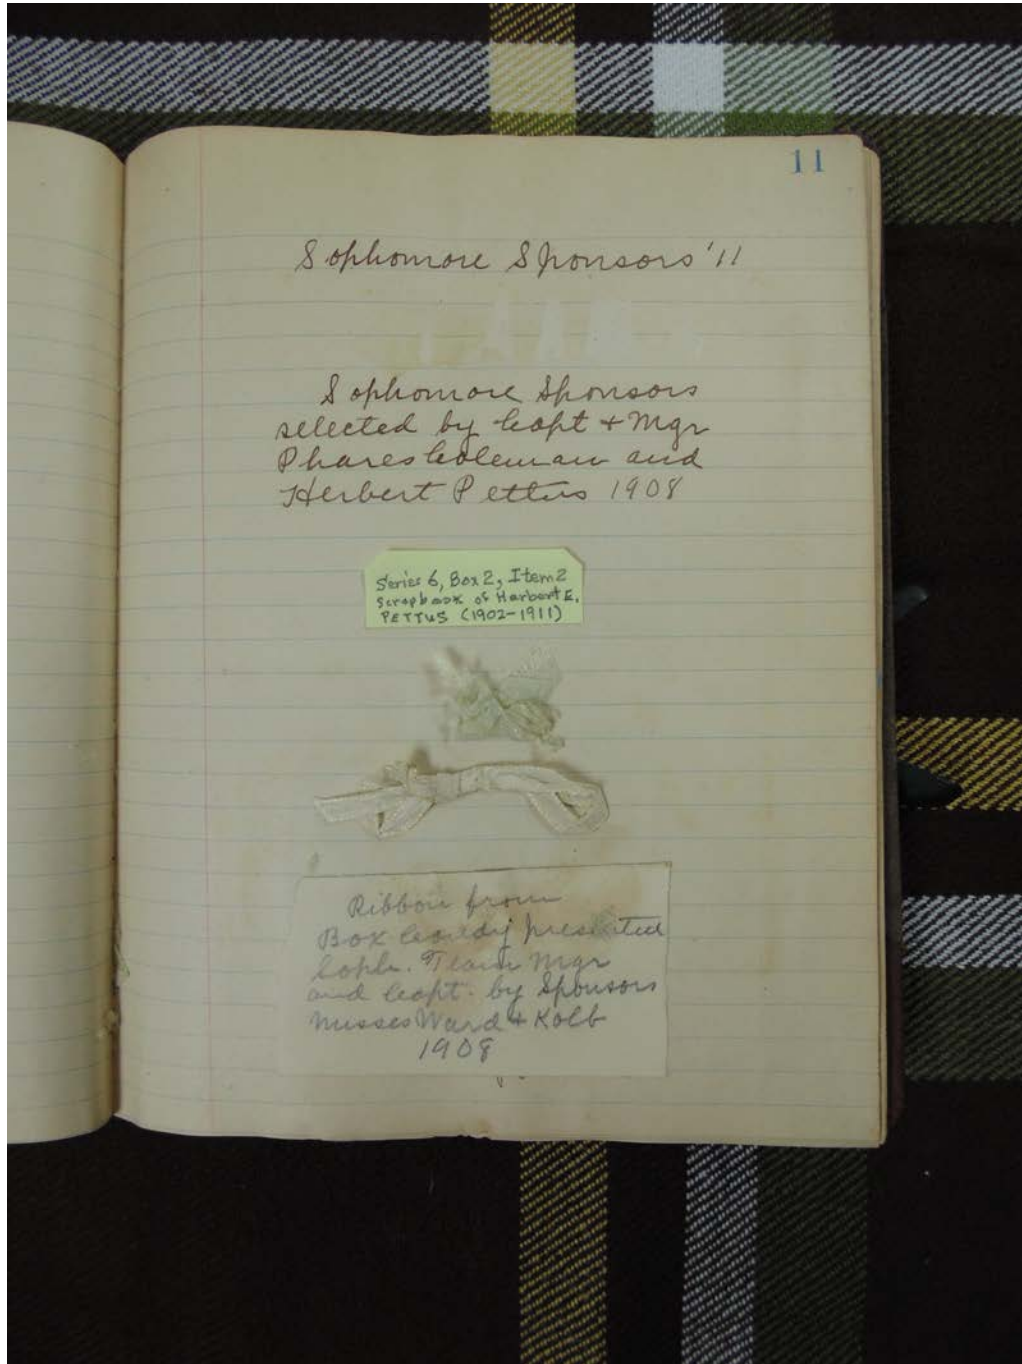 11
Sophomore Sponsors '11
Sophomore Sponsors
selected by Capt + Mgr
Phares Coleman and
Herbert Pettus 1908
Series 6, Box 2, Item 2
Scrapbook of Harbert E.
PETTUS (1902-1911)
Ribbon from
Box Candy presented
Soph. Team Mgr
and Capt. by Sponsors
Misses Ward + Kolb
1908